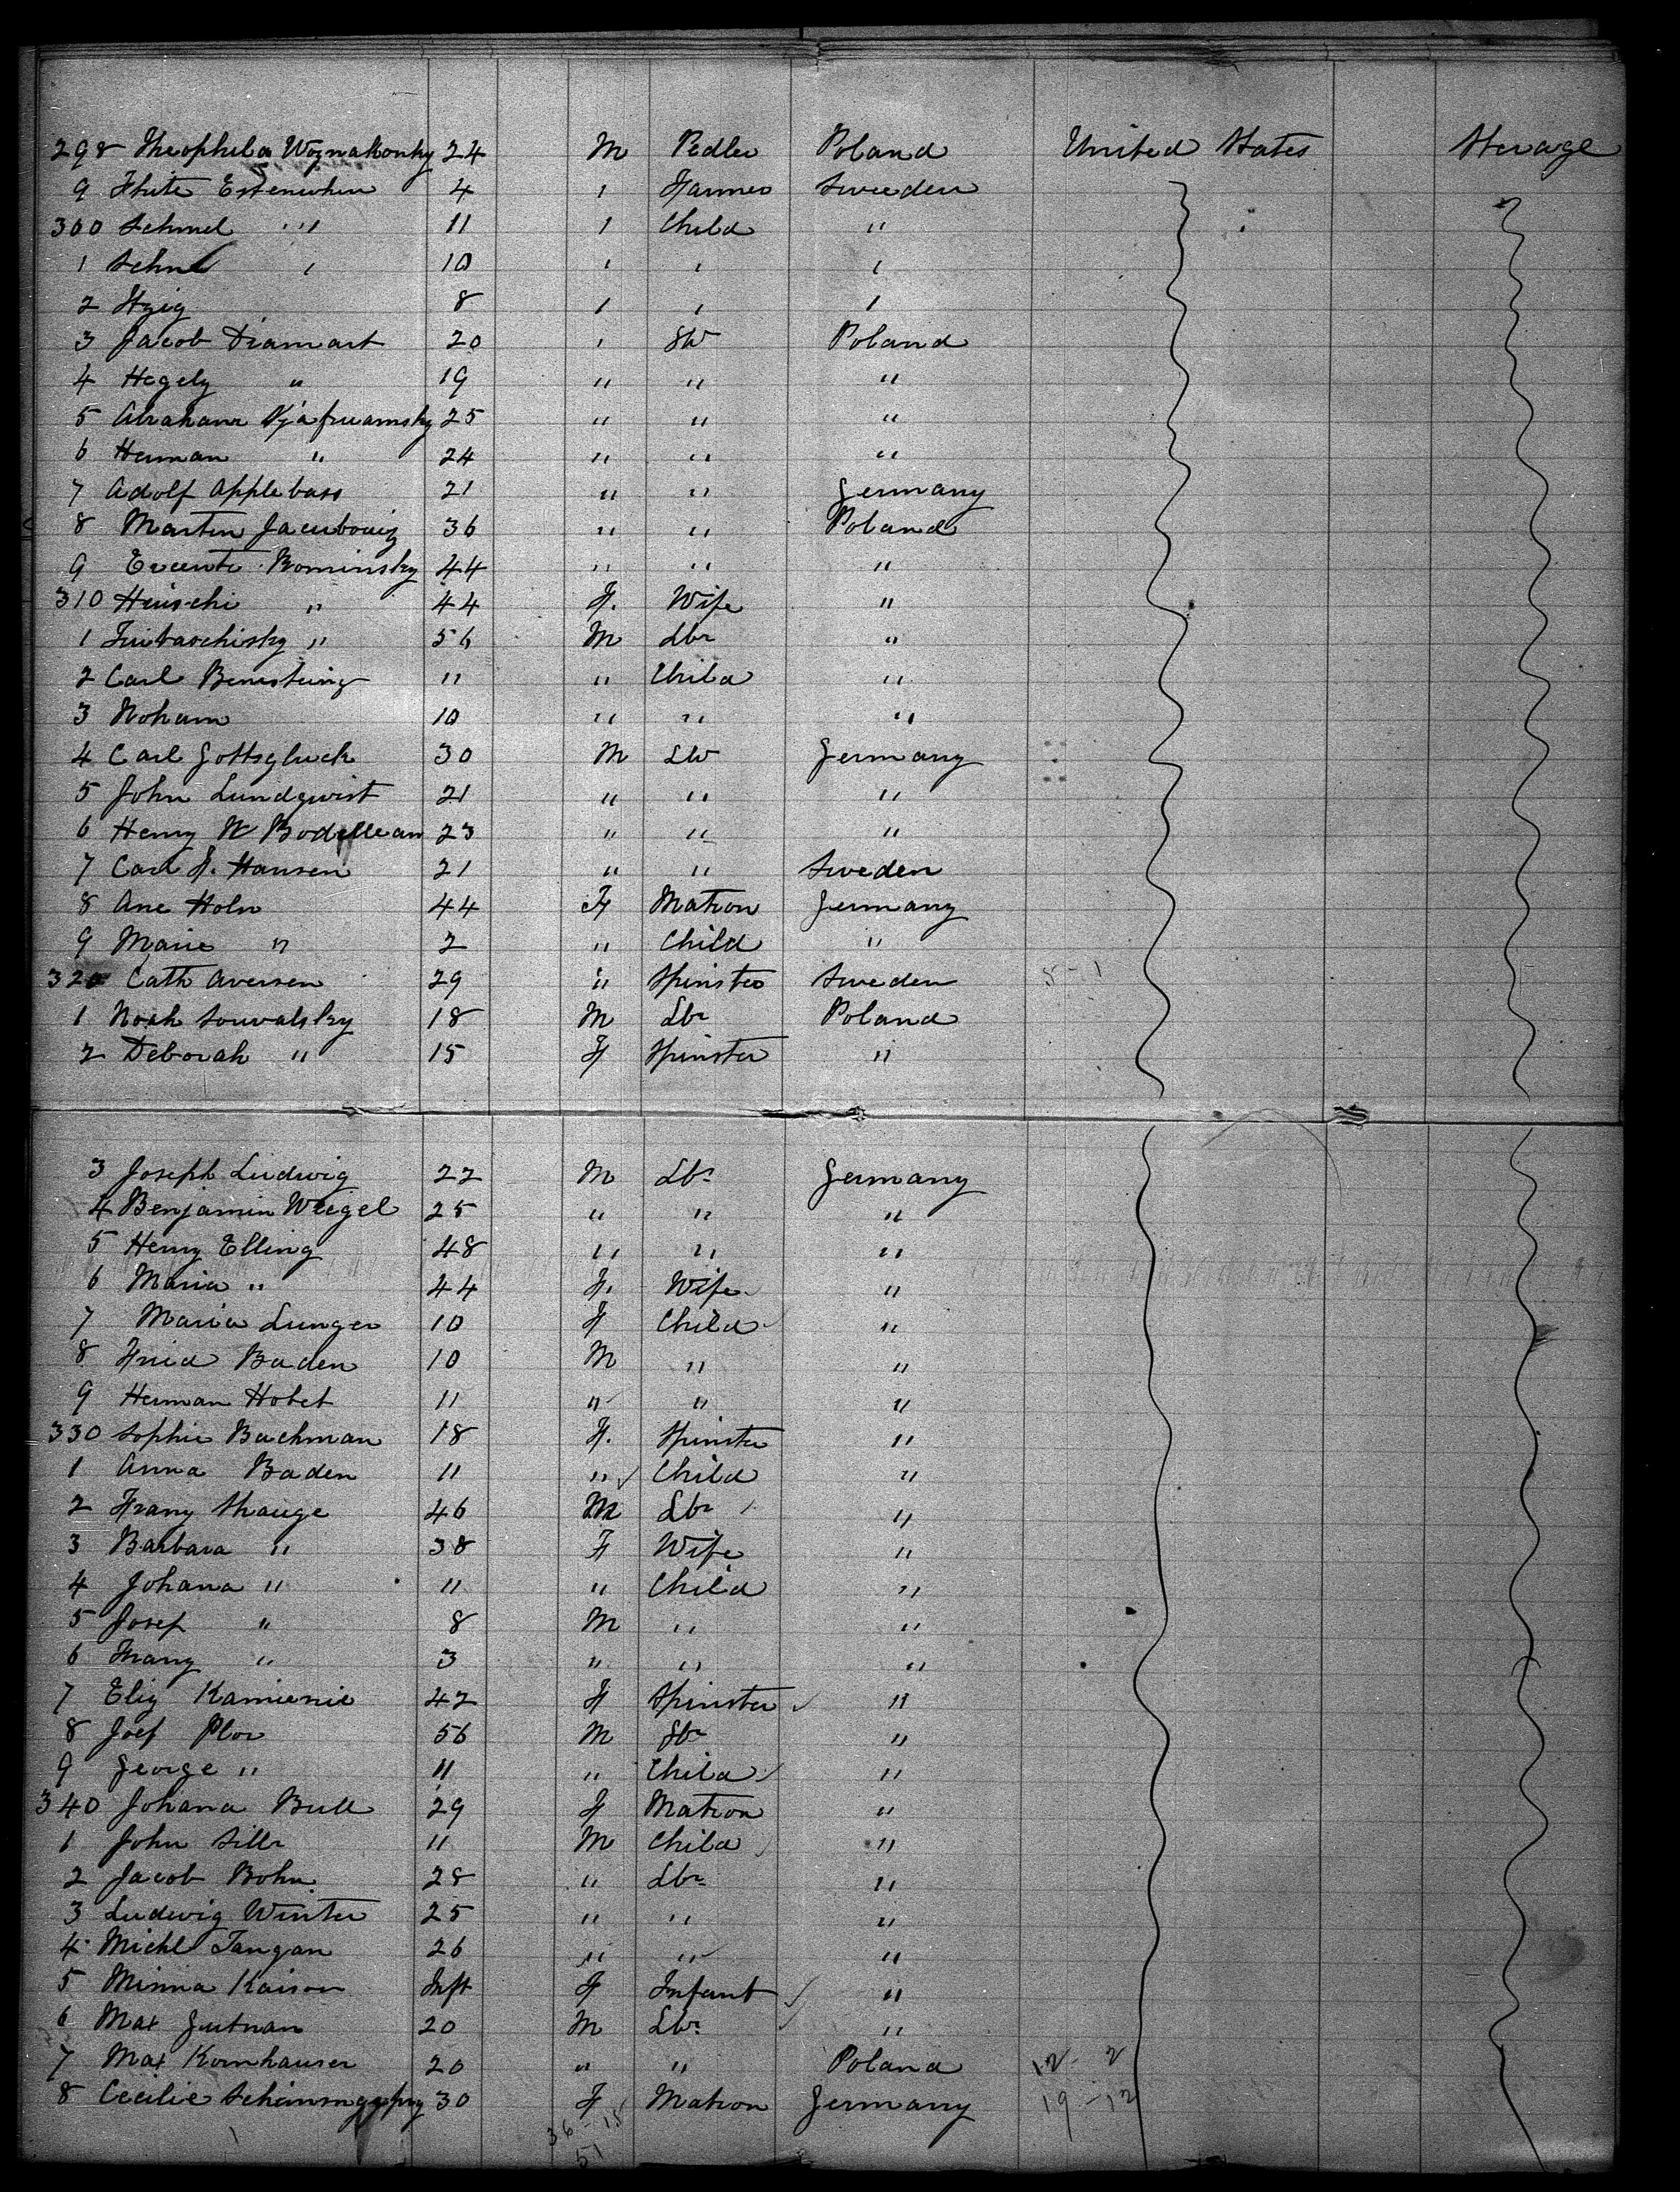 298 Theophila Woznakonky 24 M Pedler Poland United States Sterage
9 4 ' Farmer Sweeden
300 Schmel " 11 ' Child "
1 ' 10 ' ' '
2 Itzig 8 ' ' '
3 Jacob Diamant 20 ' Poland
4 Hegely " 19 " " "
5 Abraham 25 " " "
6 Herman " 24 " " "
7 Adolf Applebass 21 " " Germany
8 Martin Jacubowiz 36 " " Poland
9 Bominsky 44 " " "
310 " 44 F. Wife "
1 " 56 M Lbr "
2 Carl 11 " Child "
3 Noham 10 " " "
4 Carl Gottsgluck 30 M Germany
5 John Lundqwist 21 " " "
6 Henry W 23 " " "
7 Carl F. Hansen 21 " " Sweden
8 Ane Holm 44 F Matron Germany
9 Marie " 2 " Child "
320 Cath Aversen 29 " Spinster Sweden 5 - 1
1 Noah Souvalsky 18 M Lbr Poland
2 Deborah " 15 F Spinster "
3 Joseph Ludwig 22 M Lbr Germany
4 Benjamin Weigel 25 " " "
5 Henry Elling 48 " " "
6 Maria " 44 F. Wife "
7 Maria Lunger 10 F Child "
8 Baden 10 M " "
9 Herman Hobet 11 " " "
330 Sophie Bachman 18 F. Spinster "
1 Anna Baden 11 " Child "
2 Franz 46 M Lbr "
3 Barbara " 38 F Wife "
4 Johana " 11 " Child "
5 Josef " 8 M " "
6 Franz " 3 " " "
7 Eliz Kamienie 42 F Spinster "
8 Josf Plor 56 M Lbr "
9 George " 11 " Child "
340 Johana Bull 29 F Matron "
1 John Sills 11 M Child "
2 Jacob Bohn 28 " Lbr "
3 Ludwig Winter 25 " " "
4 Michl Tangan 26 " " "
5 Minna Kaison Inft F Infant "
6 Max Gutman 20 M Lbr "
7 Max Kornhauser 20 " " Poland 12 - 2
8 Cecilie 30 F Matron Germany 19 - 12
36 - 15
51